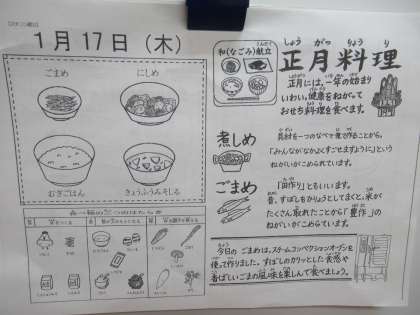 1月17日（木）
ごまめ
にしめ
むぎごはん
きょうふうみそしる
和(なごみ)献立
正月料理
正月には、一年の始まり
いわい、健康をねがって
おせち料理を食べます。
煮しめ
具材を一つのなべで煮ることから、
「みんながなかよくすごせますように」という
ねがいがこめられています。
ごまめ
「田作り」ともいいます。
昔、すぼしをかりょうとしてまくと、米が
たくさん取れたことから「豊作」の
ねがいがこめられています。
今日の ごまめは、スチームコンベクションオーブンを
使って作りました。すぼしのカリッとした食感や
香ばしいごまの風味を楽しんで食べましょう。